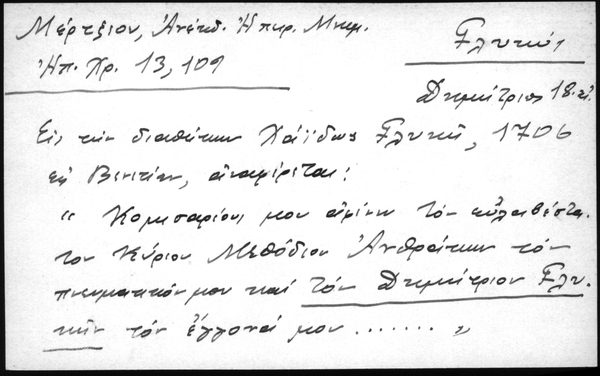 Μέρτζιον, Ἀνέκδ. Ἠπειρ. Μνημ.
Ἠπ. Χρ. 13, 109
Γλυκύς
Δημήτριος 18.αἰ.
Εἰς τὴν διαθήκην Χάϊδως Γλυκῆ, 1706
ἐν Βενετίᾳ, ἀναφέρεται:
" Κομησαρίους μου ἀφίνω τὸν εὐλαβέστα-
τον Κύριον Μεθόδιον Ἀνθράκην τὸν
πνευματικόν μου καὶ τὸν Δημήτριον Γλυ-
κὴν τὸν ἔγγονά μου ....... "